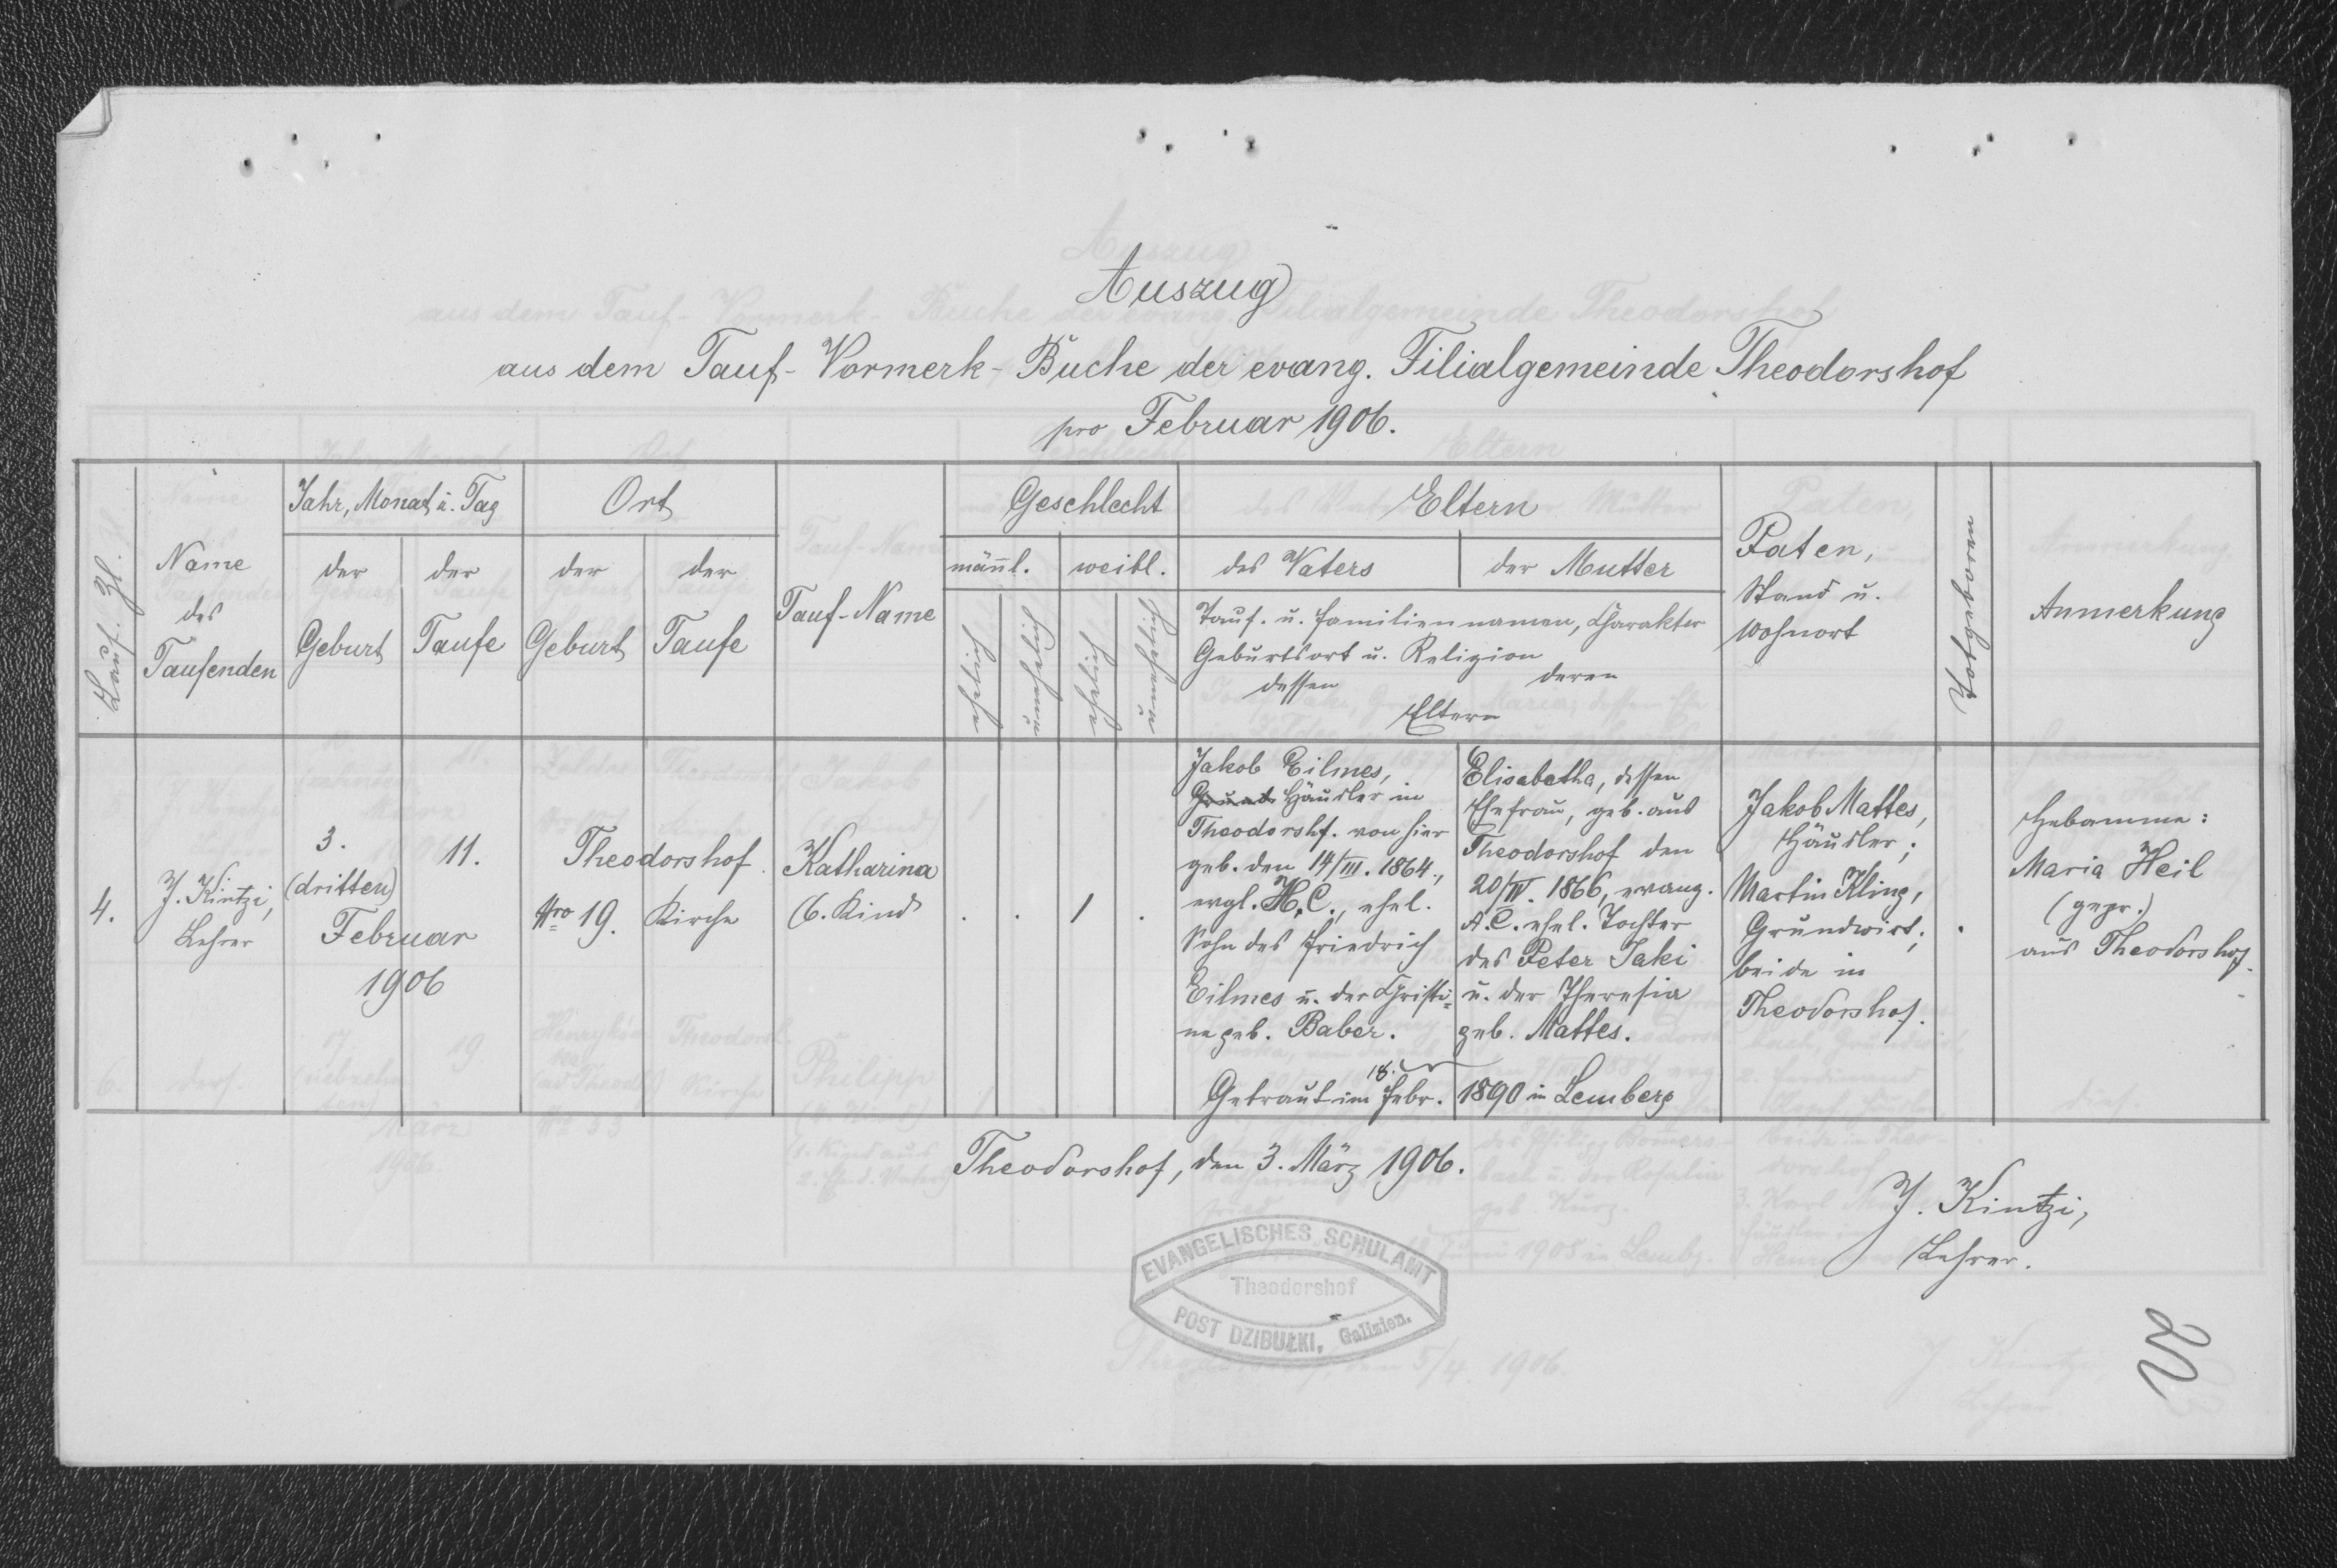 Auszug
aus dem Tauf-Vormerk-Buche der evang. Filialgemeinde Theodorshof
pro Februar 1906.
Lauf. Zl.
Name
des
Taufenden
Jahr, Monat u. Tag
der
Geburt
der
Taufe
Ort
der
Geburt
der
Taufe
Tauf-Name
Geschlecht
männl.
weibl.
ehelich
unehelich
ehelich
unehelich
Eltern
des Vaters
der Mutter
Tauf- u. Familiennamen, Charakter
Geburtsort u. Religion
dessen
deren
Eltern
Paten,
Stand u.
Wohnort
Totgeboren
Anmerkung
4.
J. Kintzi,
Lehrer
3.
(dritten)
11.
Februar
1906
Theodorshof.
Nro 19.
Kirche
Katharina
(6. Kind)
.
.
1
.
Jakob Eilmes,
Grund Häusler in
Theodorshf. von hier
geb. den 14/III. 1864.,
evgl. H.C., ehel.
Sohn des Friedrich
Eilmes u. der Christi-
ne geb. Baber.
Elisabetha, dessen
Ehefrau, geb. aus
Theodorshof den
20/IV. 1866, evang.
A.C. ehel. Tochter
des Peter Jaki
u. der Theresia
geb. Mattes.
18.
Getraut im Febr. 1890 in Lemberg
Jakob Mattes,
Häusler;
Martin Kling,
Grundwirt;
beide in
Theodorshof.
.
Hebamme:
Maria Heil
(gepr.)
aus Theodorshof.
Theodorshof, den 3. März 1906.
J. Kintzi,
Lehrer.
EVANGELISCHES SCHULAMT
Theodorshof
POST DZIBUŁKI, Galizien.
22